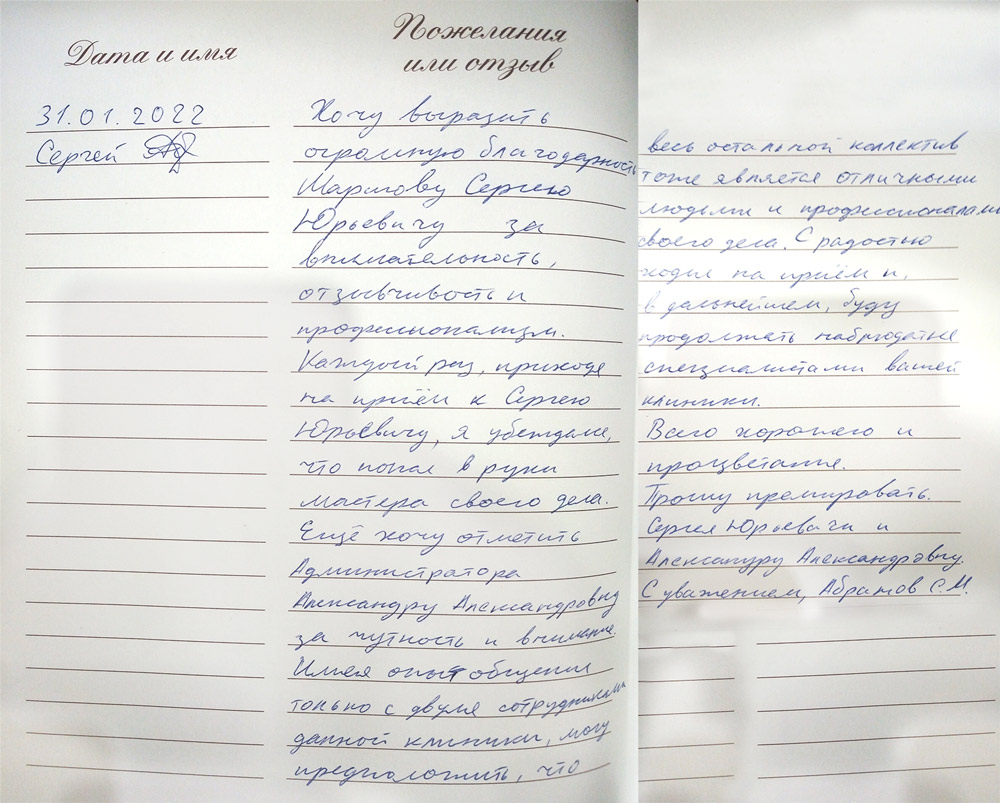 Дата и имя
Пожелания
или отзыв
31.01.2022
Сергей
Хочу выразить
огромную благодарность
Шармову Сергею
Юрьевичу за
внимательность,
отзывчивость и
профессионализм.
Каждый раз, приходя
на приём к Сергею
Юрьевичу, я убеждаюсь,
что попал в руки
мастера своего дела.
Ещё хочу отметить
Администратора
Александру Александровну
за чуткость и внимание.
Имея опыт общения
только с двумя сотрудниками
данной клиники, могу
предположить, что
весь остальной коллектив
тоже является отличными
людьми и профессионалами
своего дела. С радостью
ходил на приём и,
в дальнейшем, буду
продолжать наблюдаться
специалистами вашей
клиники.
Всего хорошего и
процветания.
Прошу премировать.
Сергея Юрьевича и
Александру Александровну.
С уважением, Абрамов С.М.